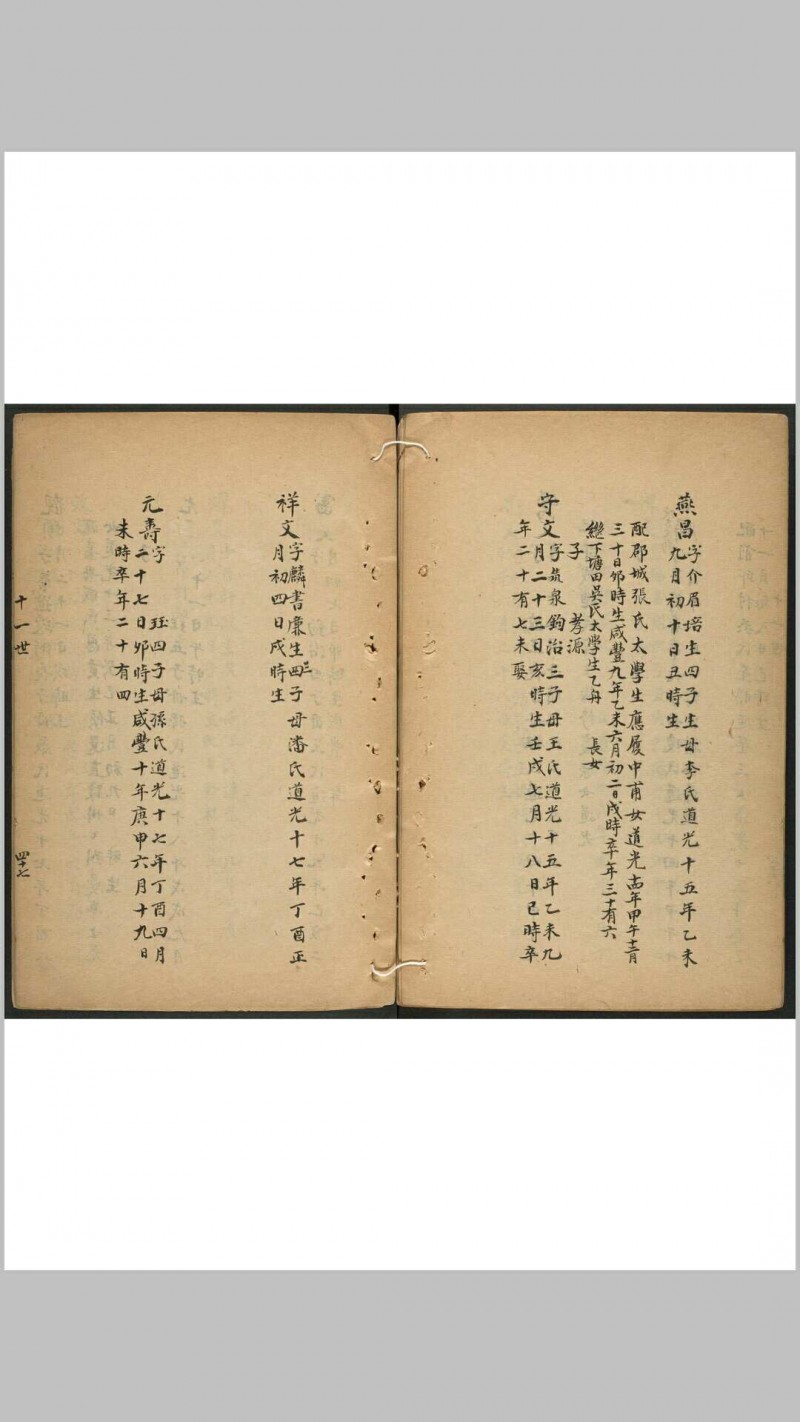 燕昌
字介眉培生四子生母李氏道光十五年乙未
九月初十日丑時生
配郡城張氏太學生應履中甫女道光十四年甲午十二月
三十日夘時生咸豐九年乙未六月初二日戌時卒年三十有六
繼下塘田吳氏太學生乙舟 長女
子 孝源
守文
字氣泉鈞治三子母王氏道光十五年乙未九
月二十三日亥時生壬戌七月十八日巳時卒
年二十有七未娶
祥文
字麟書廉生四三子母潘氏道光十七年丁酉正
月初四日戌時生
元壽
字 珏四子母孫氏道光十七年丁酉四月
二十七日夘時生咸豐十年庚申六月十九日
未時卒年二十有四
十一世
四十七